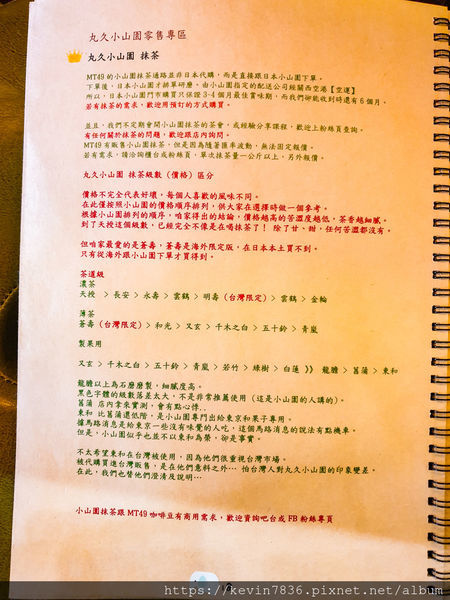 丸久小山園零售專區
丸久小山園 抹茶
MT49的小山園抹茶通路並非日本代購，而是直接跟日本小山園下單。
下單後，日本小山園才排單研磨，由小山園指定的配送公司經關西空港【空運】
所以，日本小山園門市購買只保證3-4個月最佳賞味期，而我們卻能收到時還有6個月。
若有抹茶的需求，歡迎用預訂的方式購買。
並且，我們不定期會開小山園抹茶的茶會，或經驗分享課程，歡迎上粉絲頁查詢。
有任何關於抹茶的問題，歡迎跟店內詢問。
MT49有販售小山園抹茶，但是因為隨著匯率波動，無法固定報價。
若有需求，請洽詢櫃台或粉絲頁，單次抹茶量一公斤以上，另外報價。
丸久小山園 抹茶級數（價格）區分
價格不完全代表好壞，每個人喜歡的風味不同。
在此僅按照小山園的價格順序排列，供大家在選擇時做一個參考。
根據小山園排列的順序，咱家得出的結論，價格越高的苦澀度越低，茶香越細膩。
到了天授這個級數，已經完全不像是在喝抹茶了！ 除了甘、甜，任何苦澀都沒有。
但咱家最愛的是蒼壽，蒼壽是海外限定版，在日本本土買不到。
只有從海外跟小山園下單才買得到。
茶道級
濃茶
天授 > 長安 > 永壽 > 雲鶴 > 明壽（台灣限定）> 雲鶴 > 金輪
薄茶
蒼壽（台灣限定）> 和光 > 又玄 > 千木之白 > 五十鈴 > 青嵐
製菓用
又玄 > 千木之白 > 五十鈴 > 青嵐 > 若竹 > 綠樹 > 白蓮 》》 龍膽 > 菖蒲 > 東和
龍膽以上為石磨磨製，細膩度高。
黑色字體的級數落差太大，不是非常推薦使用（這是小山園的人講的）。
菖蒲 店內拿來實測，會有點心悸..
東和 比菖蒲還低階，是小山園專門出給東京和菓子專用。
據馬路消息是給東京一些沒有味覺的人吃，這個馬路消息的說法有點機車。
但是，小山園似乎也並不以東和為榮，卻是事實。
不太希望東和在台灣被使用，因為他們很重視台灣市場。
被代購買進台灣販售，是在他們意料之外… 怕台灣人對丸久小山園的印象變差。
在此，我們也替他們澄清及說明…
小山園抹茶跟MT49咖啡豆有商用需求，歡迎資詢吧台或FB粉絲專頁
https://kevin7836.pixnet.net/album